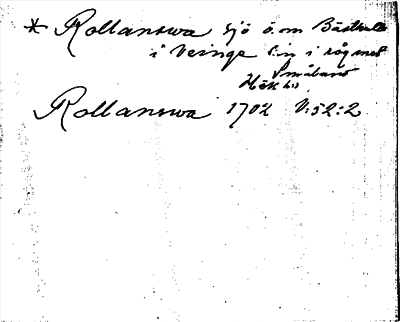 * Rollanswa sjö ö.m Bästhult
i Veinge s:n i råg mot
Småland
Hök hd
Rollanswa 1702 V:52:2